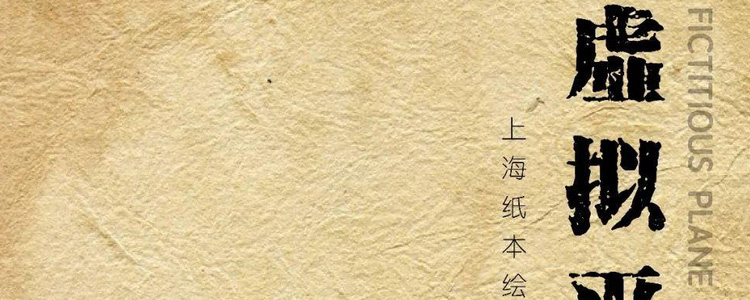 FICTITIOUS PLANE
虚拟
上海纸本绘